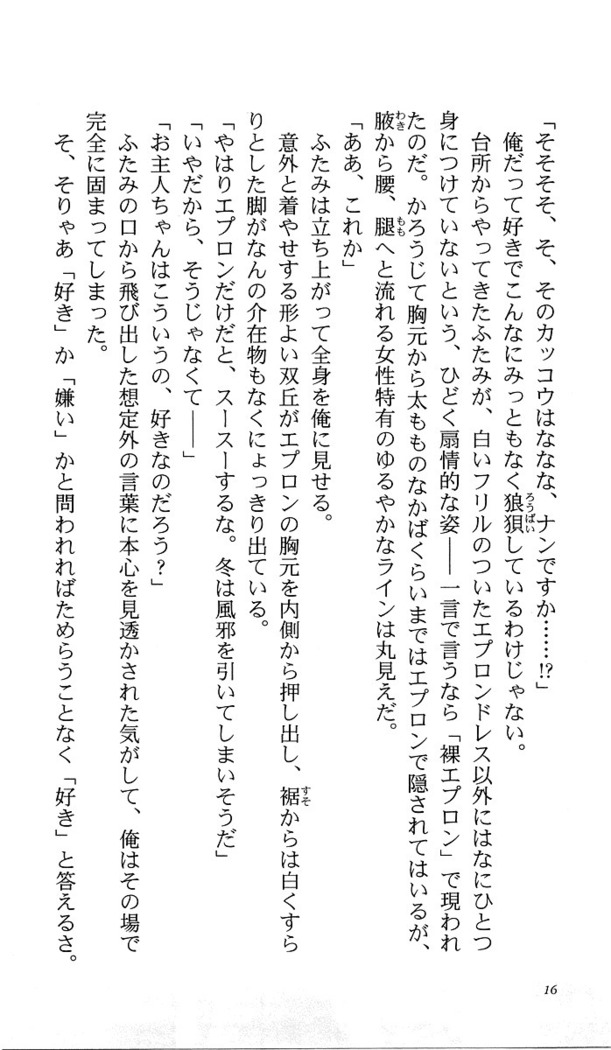 「そそそそ、そ、そのカッコウはななな、ナンですか……⁉」
俺だって好きでこんなにみっともなく狼狽しているわけじゃない。
台所からやってきたふたみが、白いフリルのついたエプロンドレス以外にはなにひとつ
身につけていないという、ひどく扇情的な姿――一言で言うなら「裸エプロン」で現われ
たのだ。かろうじて胸元から太もものなかばくらいまではエプロンで隠されてはいるが、
腋から腰、腿へと流れる女性特有のゆるやかなラインは丸見えだ。
「ああ、これか」
ふたみは立ち上がって全身を俺に見せる。
意外と着やせする形よい双丘がエプロンの胸元を内側から押し出し、裾からは白くすら
りとした脚がなんの介在物もなくにょっきり出ている。
「やはりエプロンだけだと、スースーするな。冬は風邪を引いてしまいそうだ」
「いやだから、そうじゃなくて――」
「お主人ちゃんはこういうの、好きなのだろう?」
ふたみの口から飛び出した想定外の言葉に本心を見透かされた気がして、俺はその場で
完全に固まってしまった。
そ、そりゃあ「好き」か「嫌い」かと問われればためらうことなく「好き」と答えるさ。
16